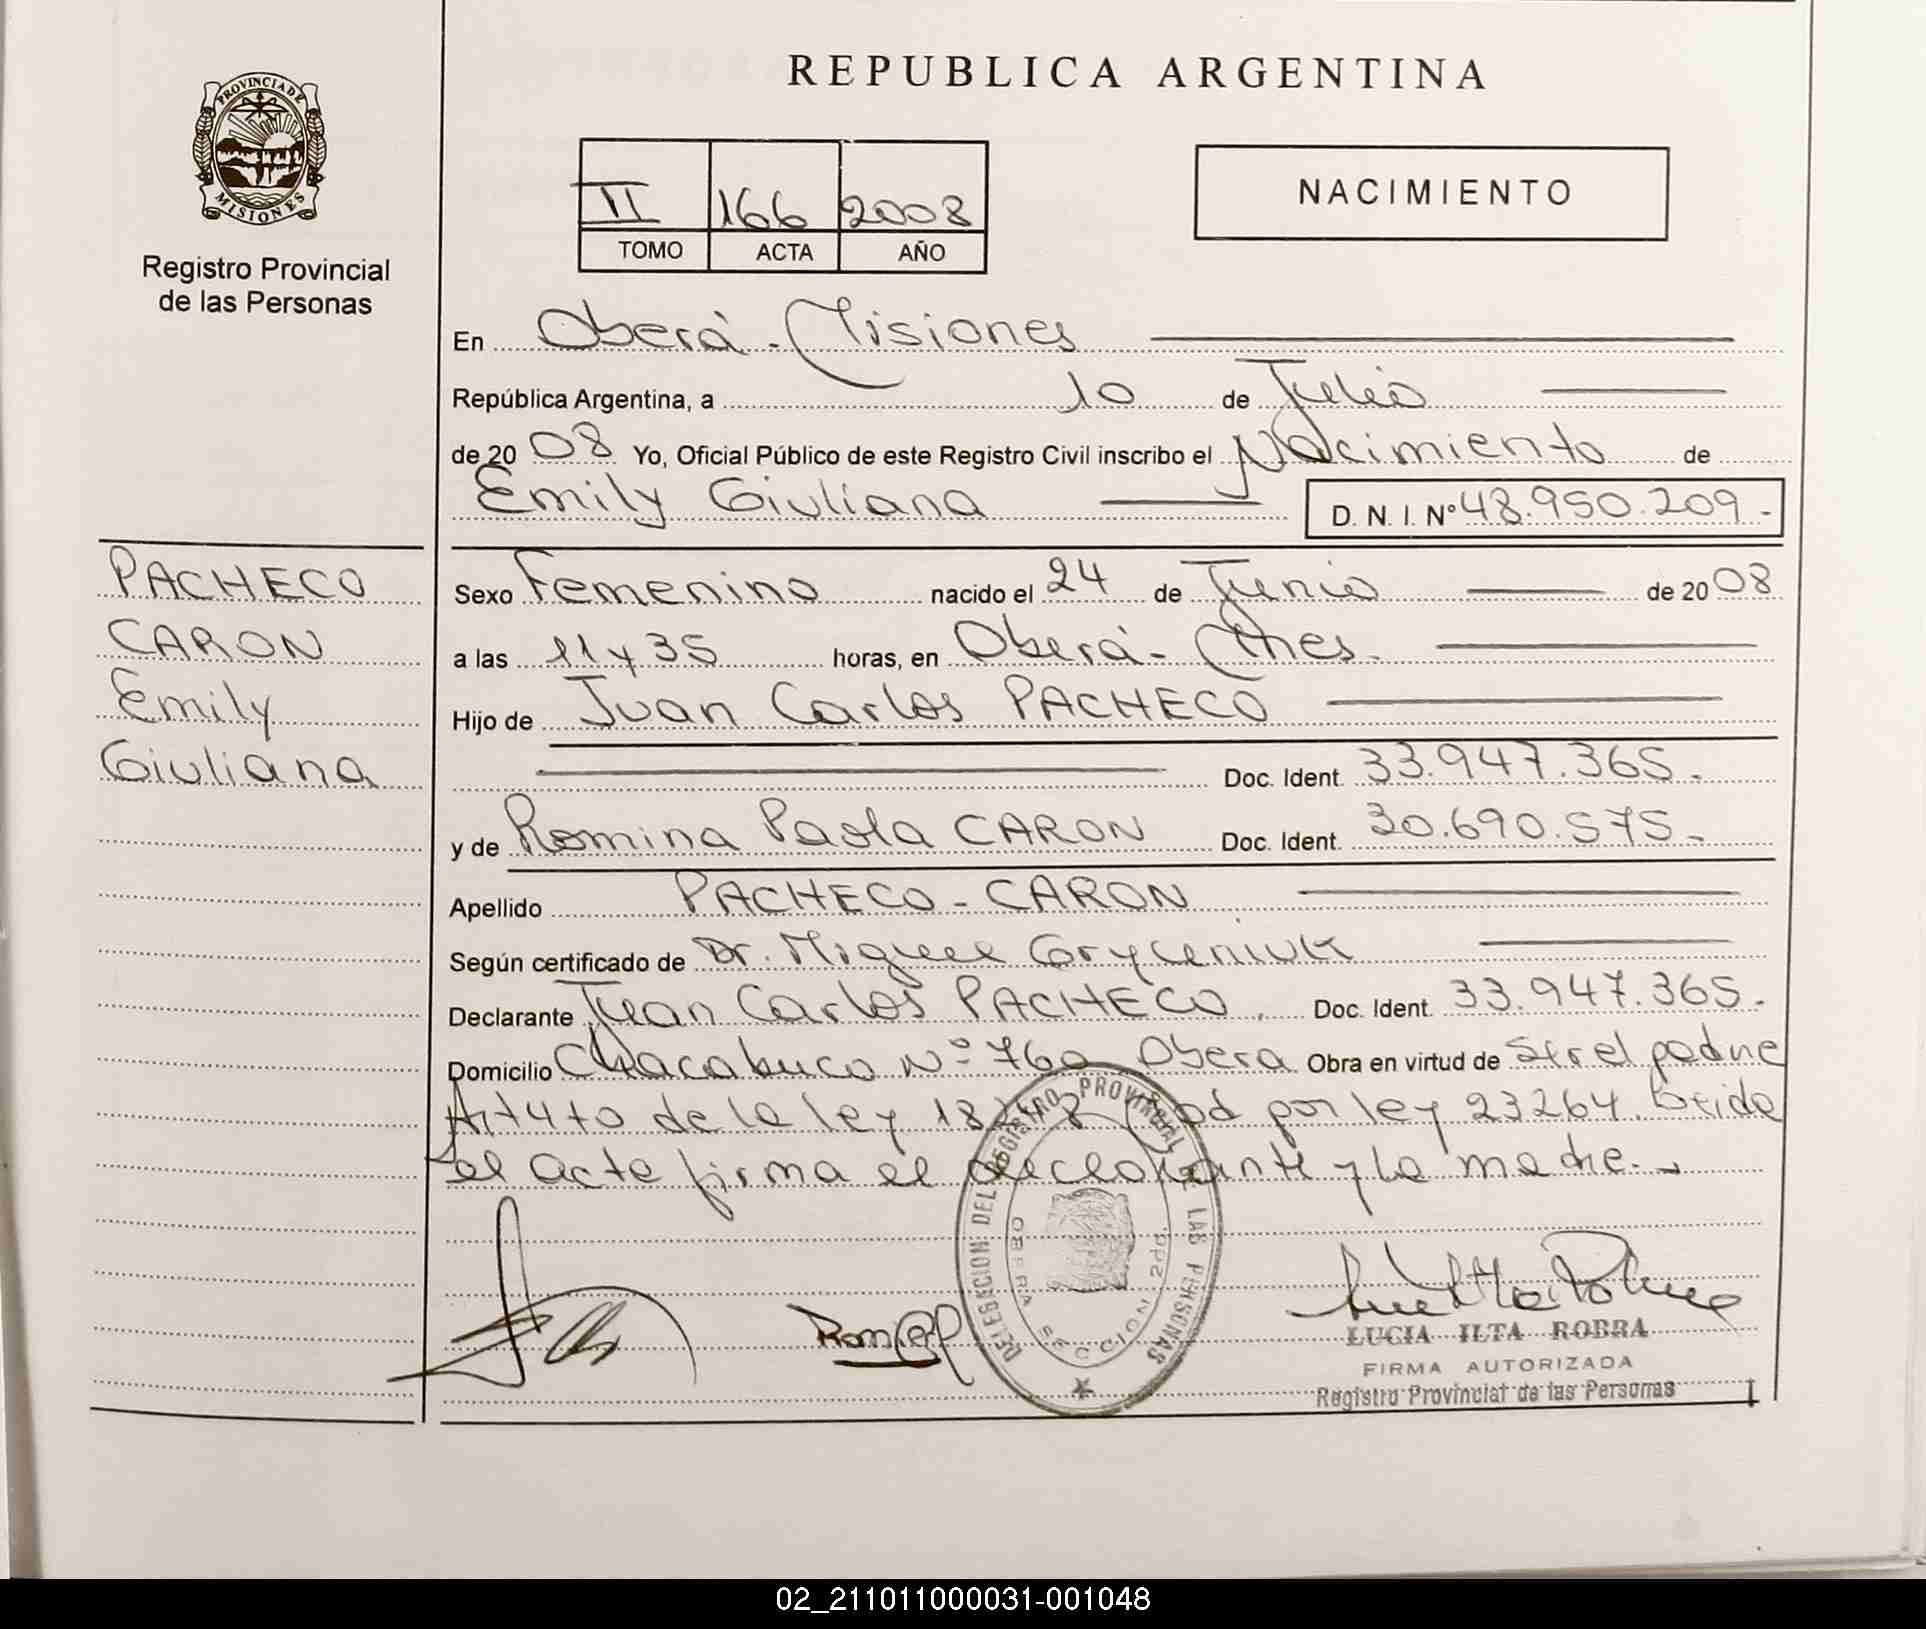 REPUBLICA ARGENTINA
PROVINCIA DE
MISIONES
Registro Provincial
de las Personas
II 166 2008
TOMO ACTA AÑO
NACIMIENTO
En Oberá - Misiones
República Argentina, a 10 de Julio
de 2008 Yo, Oficial Público de este Registro Civil inscribo el Nacimiento de
Emily Giuliana D. N. I. Nº 48.950.209.-
PACHECO
CARON
Emily
Giuliana
Sexo Femenino nacido el 24 de Junio de 2008
a las 11 y 35 horas, en Oberá - Mnes.
Hijo de Juan Carlos PACHECO
Doc. Ident. 33.947.365.-
y de Romina Paola CARON Doc. Ident. 30.690.575.-
Apellido PACHECO - CARON
Según certificado de Dr. Miguel Gryceniuk
Declarante Juan Carlos PACHECO. Doc. Ident. 33.947.365.-
Domicilio Chacabuco Nº 760 Obera Obra en virtud de Ser el padre
Art 4to de la ley 18248 Mod por ley 23264. Leida
el acta firma el declarante y la madre.-
DELEGACION DEL REGISTRO PROVINCIAL DE LAS PERSONAS
OBERA SECCION 2da.
LUCIA ILTA ROBRA
FIRMA AUTORIZADA
Registro Provincial de las Personas
02_211011000031-001048